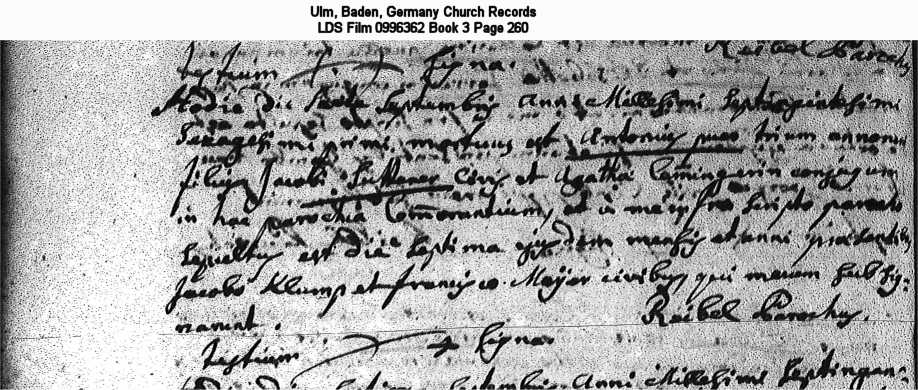 Ulm, Baden, Germany Church Records
LDS Film 0996362 Book 3 Page 260
Reibel Parochus
testium signa.
Hodie die sexta Septembris anni Millesimi Septingentesimi
mortuus est Antonius puer trium annorum
filius Jacobi civis et Agatha conjugum
in hac parochia Commorantium, et a me infra scripto parocho
sepultus est die septima ejusdem mensis et anni praesentibus
Jacobo Klump et Francisco Mayer civibus, qui mecum subsig-
narunt.
Reibel Parochus.
testium signa
anni Millesimi Septingen-